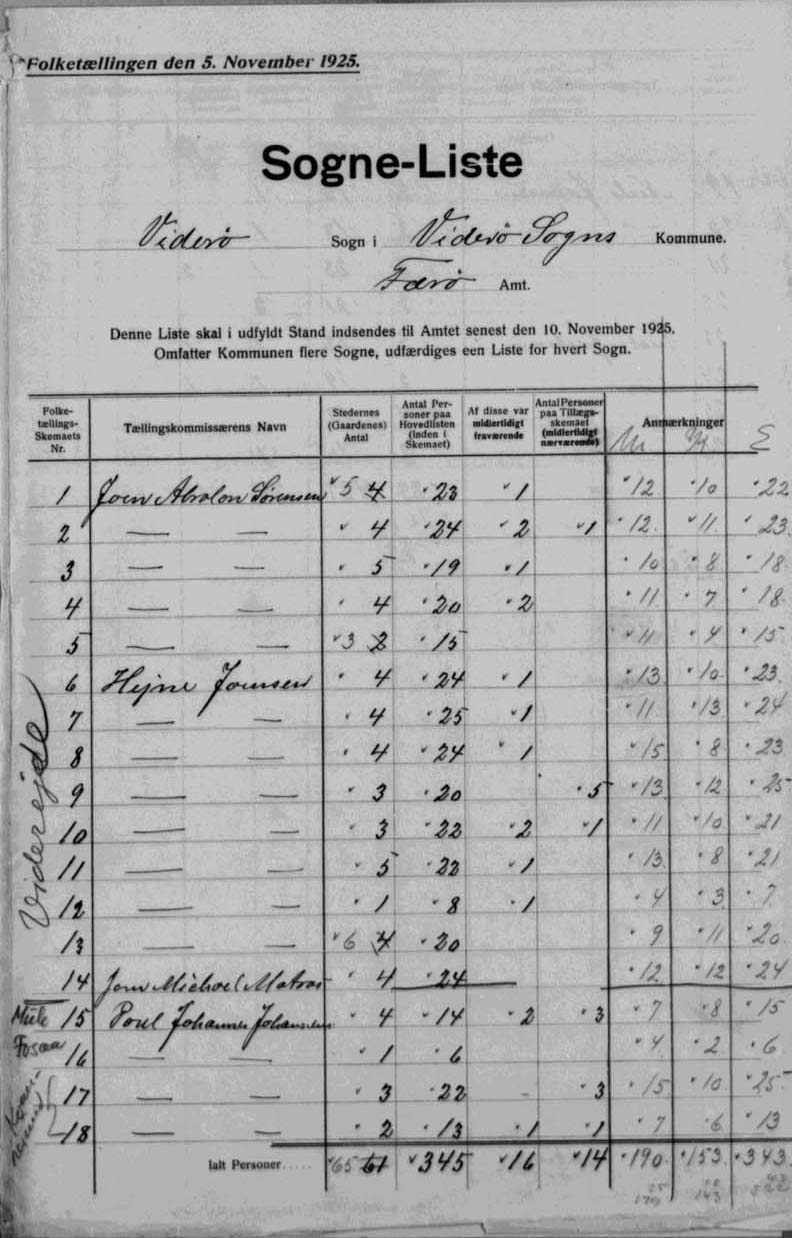 Folketællingen den 5. November 1925.
Sogne-Liste
Viderø Sogn i Viderø Sogns Kommune.
Færø Amt.
Denne Liste skal i udfyldt Stand indsendes til Amtet senest den 10. November 1925.
Omfatter Kommunen flere Sogne, udfærdiges een Liste for hvert Sogn.
Folketællings-Skemaets Nr. Tællingskommissærens Navn Stedernes (Gaardenes) Antal Antal Personer paa Hovedlisten (inden i Skemaet) Af disse var midlertidigt fraværende Antal Personer paa Tillægsskemaet (midlertidigt nærværende) Anmærkninger
M K E
1 Joen Absalon Sørensen 5 4 23 1 12 10 22
2 — — 4 24 2 1 12 11 23
3 — — 5 19 1 10 8 18
4 — — 4 20 2 11 7 18
5 — — 3 2 15 11 4 15
6 Hejne Joensen 4 24 1 13 10 23
7 — — 4 25 1 11 13 24
8 — — 4 24 1 15 8 23
9 — — 3 20 5 13 12 25
10 — — 3 22 2 1 11 10 21
11 — — 5 22 1 13 8 21
12 — — 1 8 1 4 3 7
13 — — 6 4 20 9 11 20
Viderejde
14 Michael Matras 4 24 12 12 24
Mule 15 Poul Johannes Johansen 4 14 2 3 7 8 15
Fosaa 16 — — 1 6 4 2 6
17 — — 3 22 - 3 15 10 25
18 — — 2 13 1 1 7 6 13
Ialt Personer 65 61 345 16 14 190 153 343